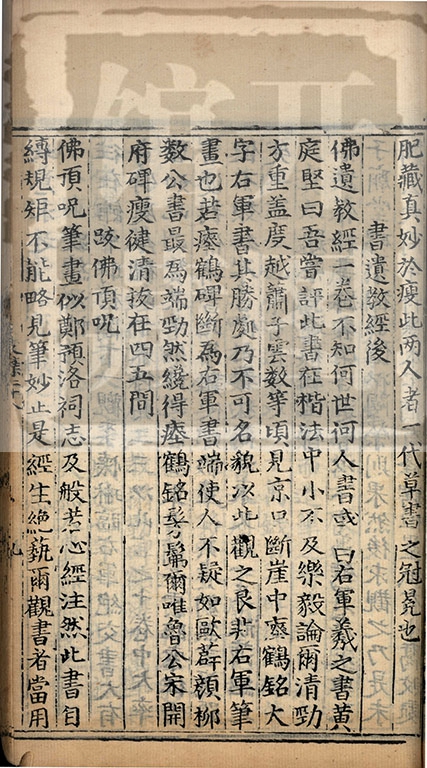 肥藏真妙於瘦此两人者一代草書之冠冕也
書遺敎經後
佛遺敎經一卷不知何世何人書或曰右軍羲之書黄
庭堅曰吾嘗評此書在楷法中小不及樂毅論爾清勁
方重盖度越蕭子雲數等頃見京口斷崖中瘞鶴銘大
字右軍書其勝處乃不可名貌以此觀之良非右軍筆
畫也若瘞鶴碑斷為右軍書端使人不疑如歐薛顔柳
數公書最爲端勁然纔得瘞鶴銘髣髴爾唯魯公宋開
府碑瘦徤清拔在四五間
跋佛頂呪
佛頂呪筆畫似鄭預洛祠志及般若心經注然此書自
縛規矩不能略見筆妙止是經生絶藝爾觀書者當用